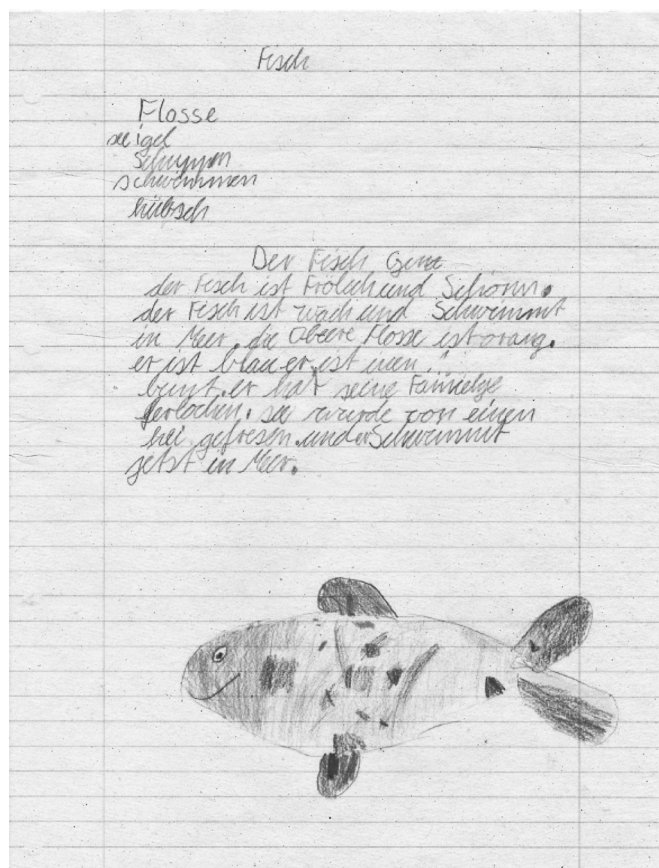 Fisch
Flosse
seeigel
Schuppen
schwimmen
hübsch
Der Fisch
der Fisch ist Frölich und Schörn.
der Fisch ist wach und Schwimmt
in Meer. die Obere Flosse ist orang.
er ist blau er ist
bunt. er hat seine Famielge
ferlochen. sie wurde von einen
hei gefresen. und er Schwimmt
jetst in Meer.